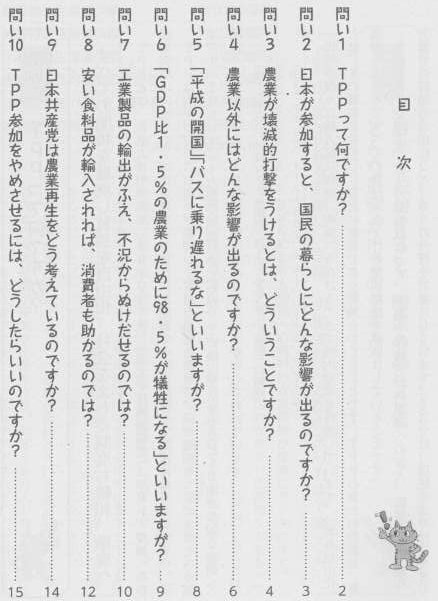 目次
問い1 TPPって何ですか？…………2
問い2 日本が参加すると、国民の暮らしにどんな影響が出るのですか？…………3
問い3 農業が壊滅的打撃をうけるとは、どういうことですか？…………4
問い4 農業以外にはどんな影響が出るのですか？…………6
問い5 「平成の開国」「バスに乗り遅れるな」といいますが？…………8
問い6 「GDP比1・5％の農業のために98・5％が犠牲になる」といいますが？…………9
問い7 工業製品の輸出がふえ、不況からぬけだせるのでは？…………10
問い8 安い食料品が輸入されれば、消費者も助かるのでは？…………12
問い9 日本共産党は農業再生をどう考えているのですか？…………14
問い10 TPP参加をやめさせるには、どうしたらいいのですか？…………15